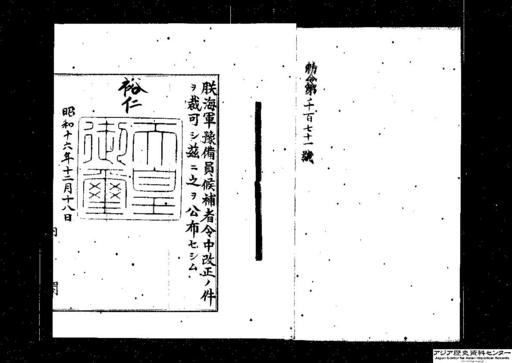 勅令第千百七十一號
朕海軍豫備員候補者令中改正ノ件
ヲ裁可シ茲ニ之ヲ公布セシム
裕仁
天皇
御璽
昭和十六年十二月十八日
内閣
アジア歴史資料センター
Japan Center for Asian Historical Records